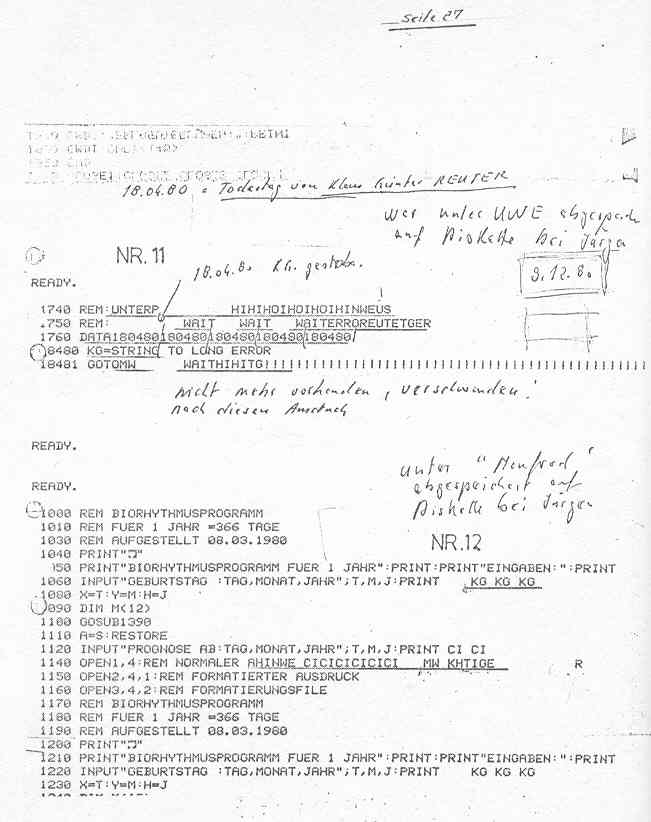 Seite 27
18.04.80 = Todestag von Klaus Günter REUTER
War unter UWE abgespeich
auf Diskette bei Jürgen
NR. 11
18.04.80 Kl. gestorben.
9.12.80
READY.
1740 REM:UNTERP HIHIHOIHOIHOIHINWEUS
.750 REM: WAIT WAIT WAITERROREUTETGER
1760 DATA180480180480180480180480180480
18480 KG=STRING TO LONG ERROR
18481 GOTOMW WAITHIHITG!!!!!!!!!!!!!!!!!!!!!!!!!!!!!!!!!!!!!!!!
nicht mehr vorhanden, verschwunden!
nach diesem Ausdruck
READY.
unter "Manfred"
abgespeichert auf
Diskette bei Jürgen
READY.
1000 REM BIORHYTHMUSPROGRAMM
1010 REM FUER 1 JAHR =366 TAGE
1030 REM AUFGESTELLT 08.03.1980
NR.12
1040 PRINT"♫"
050 PRINT"BIORHYTHMUSPROGRAMM FUER 1 JAHR":PRINT:PRINT"EINGABEN:":PRINT
1060 INPUT"GEBURTSTAG :TAG,MONAT,JAHR";T,M,J:PRINT KG KG KG
1080 X=T:Y=M:H=J
1090 DIM M(12)
1100 GOSUB1390
1110 A=S:RESTORE
1120 INPUT"PROGNOSE AB:TAG,MONAT,JAHR";T,M,J:PRINT CI CI
1140 OPEN1,4:REM NORMALER AHINWE CICICICICICI MW KHTIGE R
1150 OPEN2,4,1:REM FORMATIERTER AUSDRUCK
1160 OPEN3,4,2:REM FORMATIERUNGSFILE
1170 REM BIORHYTHMUSPROGRAMM
1180 REM FUER 1 JAHR =366 TAGE
1190 REM AUFGESTELLT 08.03.1980
1200 PRINT"♫"
1210 PRINT"BIORHYTHMUSPROGRAMM FUER 1 JAHR":PRINT:PRINT"EINGABEN:":PRINT
1220 INPUT"GEBURTSTAG :TAG,MONAT,JAHR";T,M,J:PRINT KG KG KG
1230 X=T:Y=M:H=J